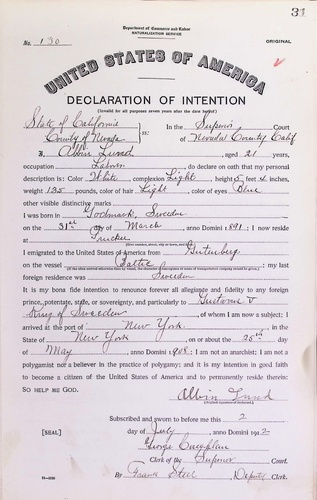 31
Department of Commerce and Labor
NATURALIZATION SERVICE
No. 130
ORIGINAL
UNITED STATES OF AMERICA
DECLARATION OF INTENTION
(Invalid for all purposes seven years after the date hereof)
State of California
County of Nevada
ss:
In the Superior Court
of Nevada County Calif
I, Albin Lund, aged 21 years,
occupation Laborer, do declare on oath that my personal
description is: Color White, complexion Light, height 5 feet inches,
weight 135 pounds, color of hair Light, color of eyes Blue
other visible distinctive marks
I was born in Sweden
on the 31st day of March, anno Domini 1891; I now reside
at Truckee
I emigrated to the United States of America from Gutenberg
on the vessel Baltic; my last
foreign residence was Sweden
It is my bona fide intention to renounce forever all allegiance and fidelity to any foreign
prince, potentate, state, or sovereignty, and particularly to Gustave V
King of Sweeden, of whom I am now a subject; I
arrived at the port of New York, in the
State of New York, on or about the 25th day
of May, anno Domini 1908; I am not an anarchist; I am not a
polygamist nor a believer in the practice of polygamy; and it is my intention in good faith
to become a citizen of the United States of America and to permanently reside therein:
SO HELP ME GOD.
Albin Lund
Subscribed and sworn to before me this 2
[SEAL]
day of July, anno Domini 1912
George
Clerk of the Superior Court.
By Frank Steel, Deputy Clerk.